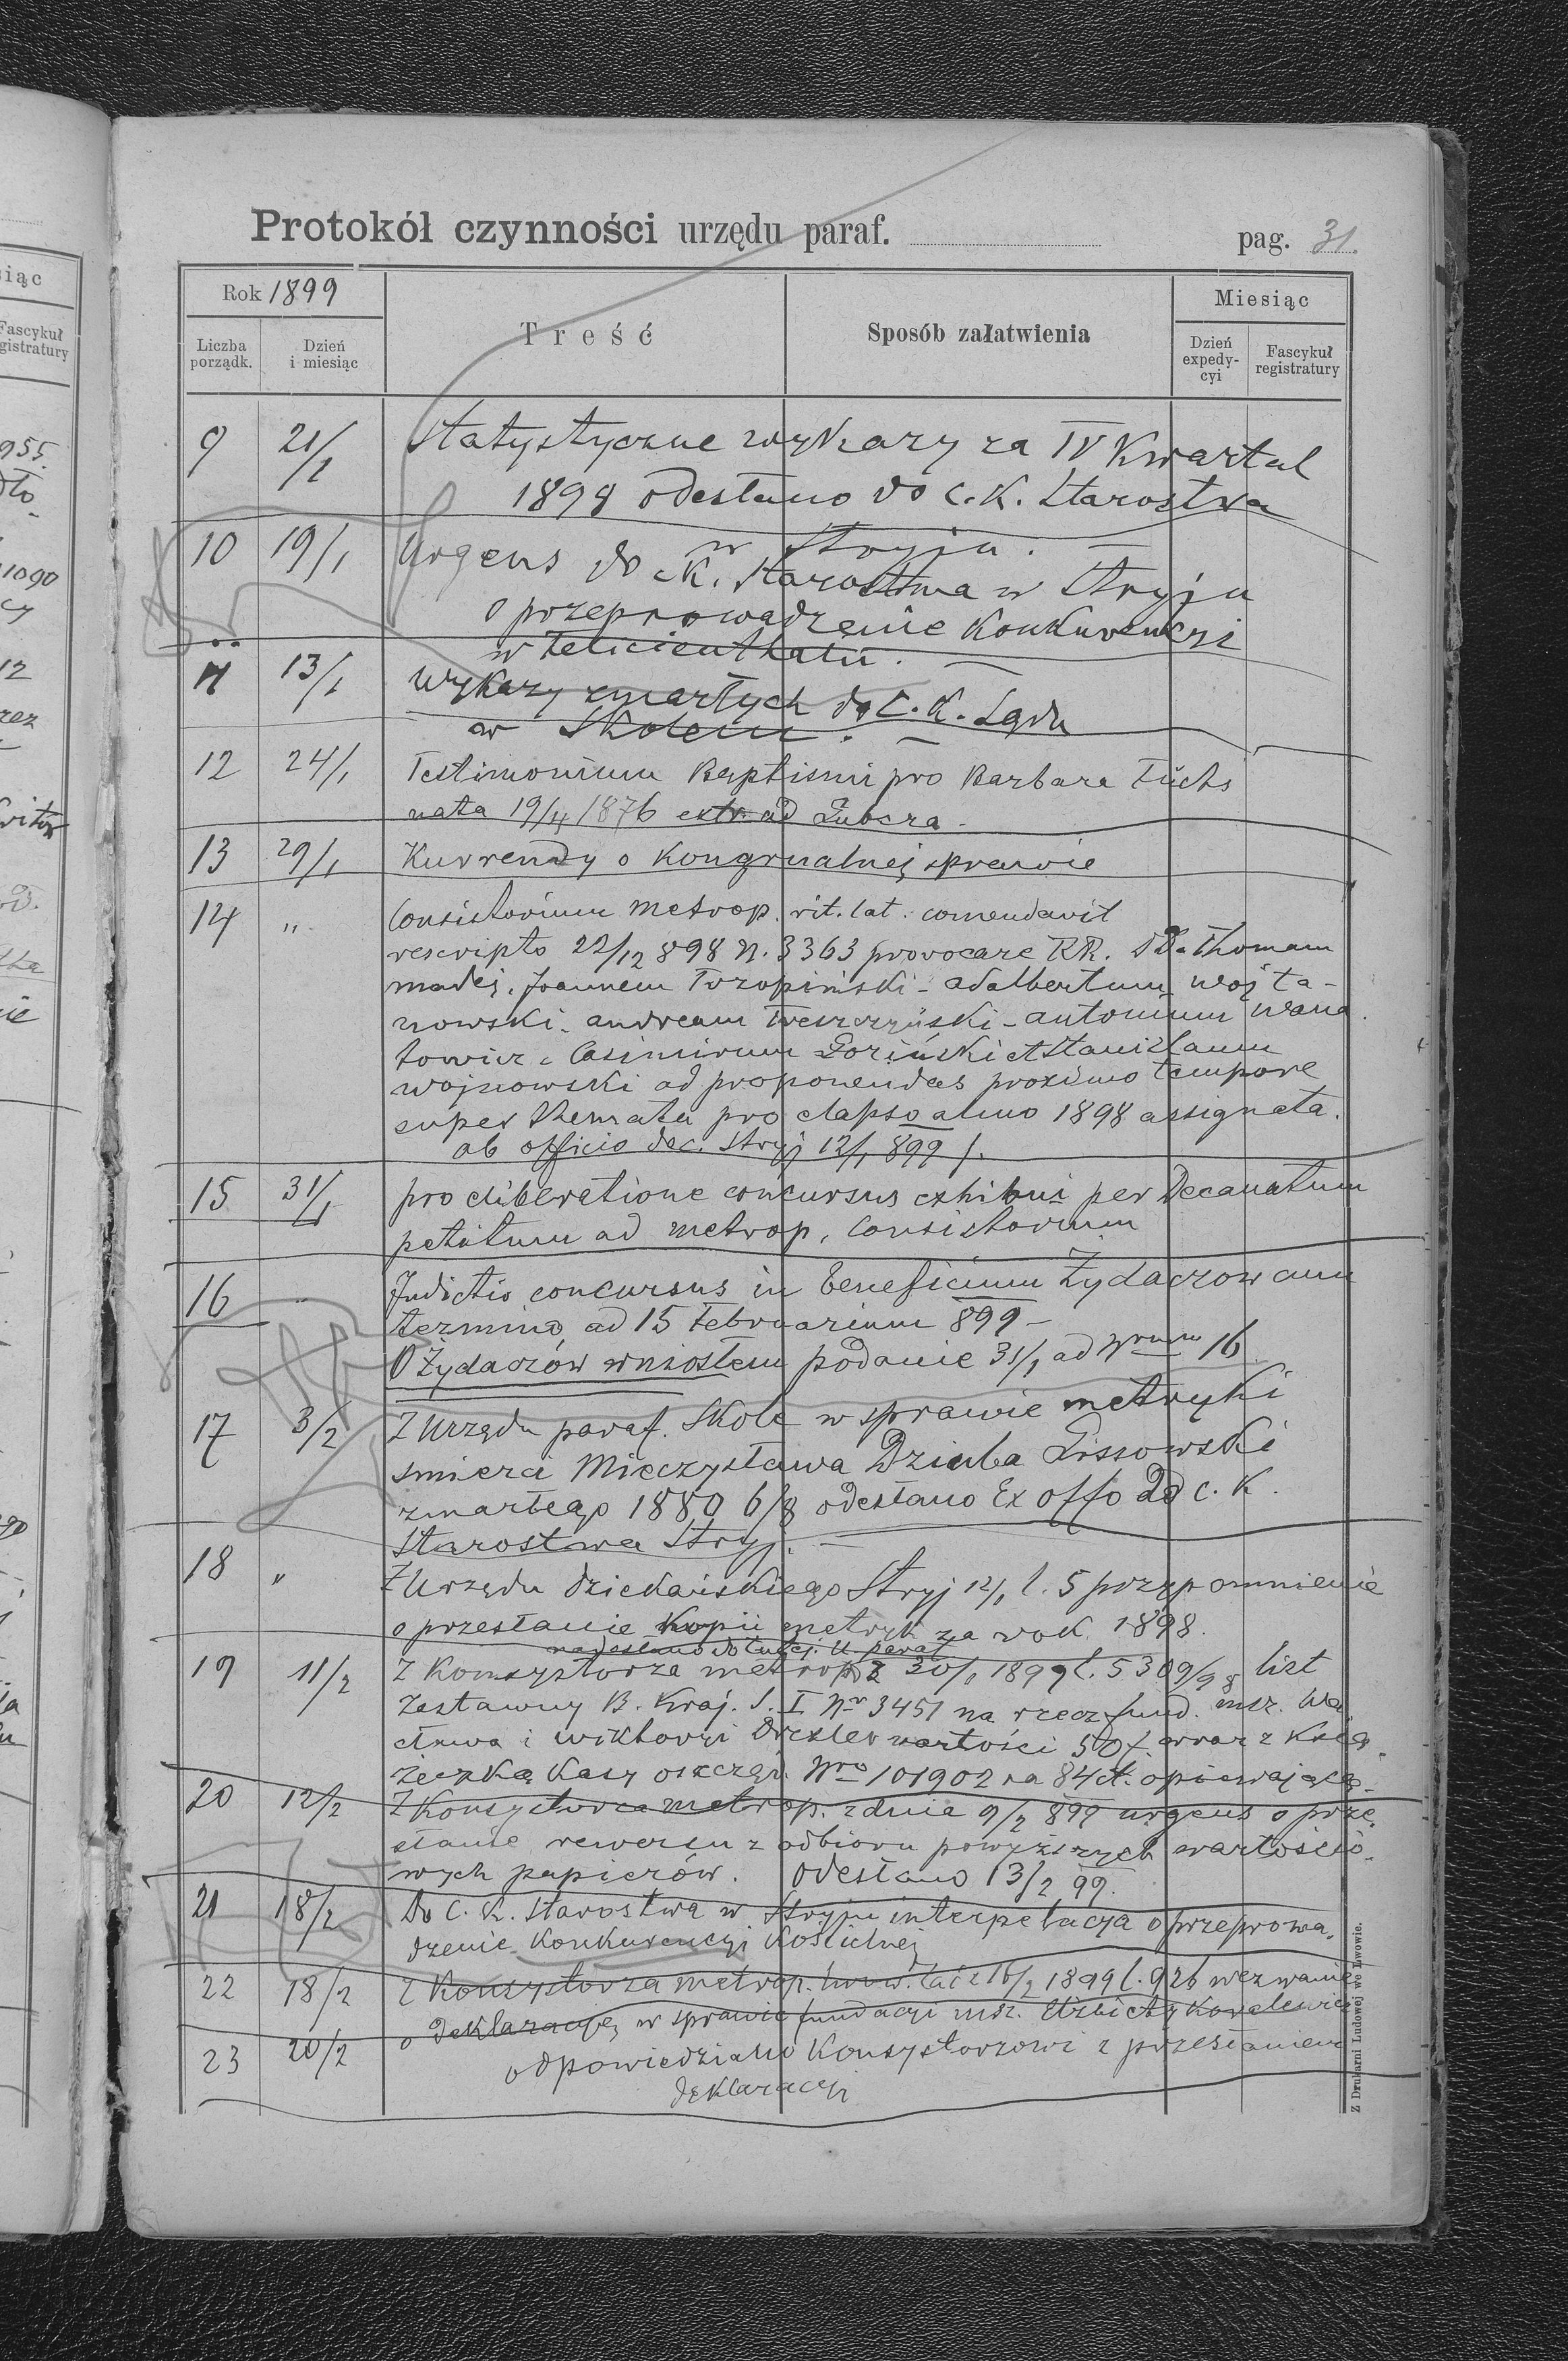 Protokół czynności urzędu paraf. pag. 31
Rok 1899
Liczba porządk.
Dzień i miesiąc
Treść
Sposób załatwienia
Miesiąc
Dzień expedycyi
Fascykuł registratury
9 21/1 Statystyczne wykazy za IV Kwartal
1898 odesłano do c. K. Starostwa
w Stryju.
10 19/1 Urgens do c.K. Starostwa w Stryju
o przeprowadzenie Konkurencyi
w
11 13/1 Wykazy zmarłych do C. K. Sądu
w Skolem.
12 24/1 Testimonium Baptismi pro Barbara Füchs
nata 19/4 1876 extr. ad
13 29/1 Kurrendy o Kongrualnej sprawie
14 " Consistorium Metrop. rit. lat. comendavit
rescripto 22/12 898 N. 3363 provocare RR. DD. Thomam
Madej, Joannem Tvropiński - Adalbertum Wojta-
nowski. Andream - Antonium Wana
towicz, Casimirum Goziński et Stanislaum
Wojnowski ad proponendas proximo tempore
super themata pro elapso anno 1898 assignata.
ab officio dec. Stryj 12/1 899 /.
15 31/1 pro deliberatione concursus exhibui per Decanatum
petitum ad metrop, Consistorium
16 " Indictio concursus in beneficium Żydaczowcum
termino ad 15 Februarium 899 -
O Żydaczów wniosłem podanie 31/1 ad Nrum 16
17 3/2 Z Urzędu paraf. Skole w sprawie metryki
smierci Mieczysława Dziuba Lissowski
zmarłego 1880 6/8 odesłano Ex offo do c. K.
Starostwa Stryj. -
18 " Z Urzędu dziekańskiego Stryj 12/1 l. 5 przypomnienie
o przesłanie Kopii metryk za rok 1898.
nadesłano do tutej. U. paraf
19 11/2 Z Konsystorza metrop. z 30/1 1899 l. 5309/98 list
zastawny B. Kraj. S. I Nr 3451 na rzecz fund. msz. Wa
cława i Wiktoryi Drexler wartości 50 f. wraz z Ksią-
żeczką Kasy oszczęd. Nro 101902 na 84 ct. opiewającą.
20 12/2 Z Konsystorza metrop. z dnia 9/2 899 urgens o prze-
słanie rewersu z odbioru powyższych wartościo-
wych papierów. Odesłano 13/2 99.
21 18/2 Do C. K. Starostwa w Stryju interpelacya o przeprowa-
dzenie Konkurencyi Kościelnej
22 18/2 Z Konsystorza metrop. z 16/2 1899 l. 926 wezwanie
o deklaracyę w sprawie fundacyi msz.
23 20/2 odpowiedziano Konsystorzowi z przesłaniem
deklaracyi
Z Drukarni Ludowej we Lwowie.